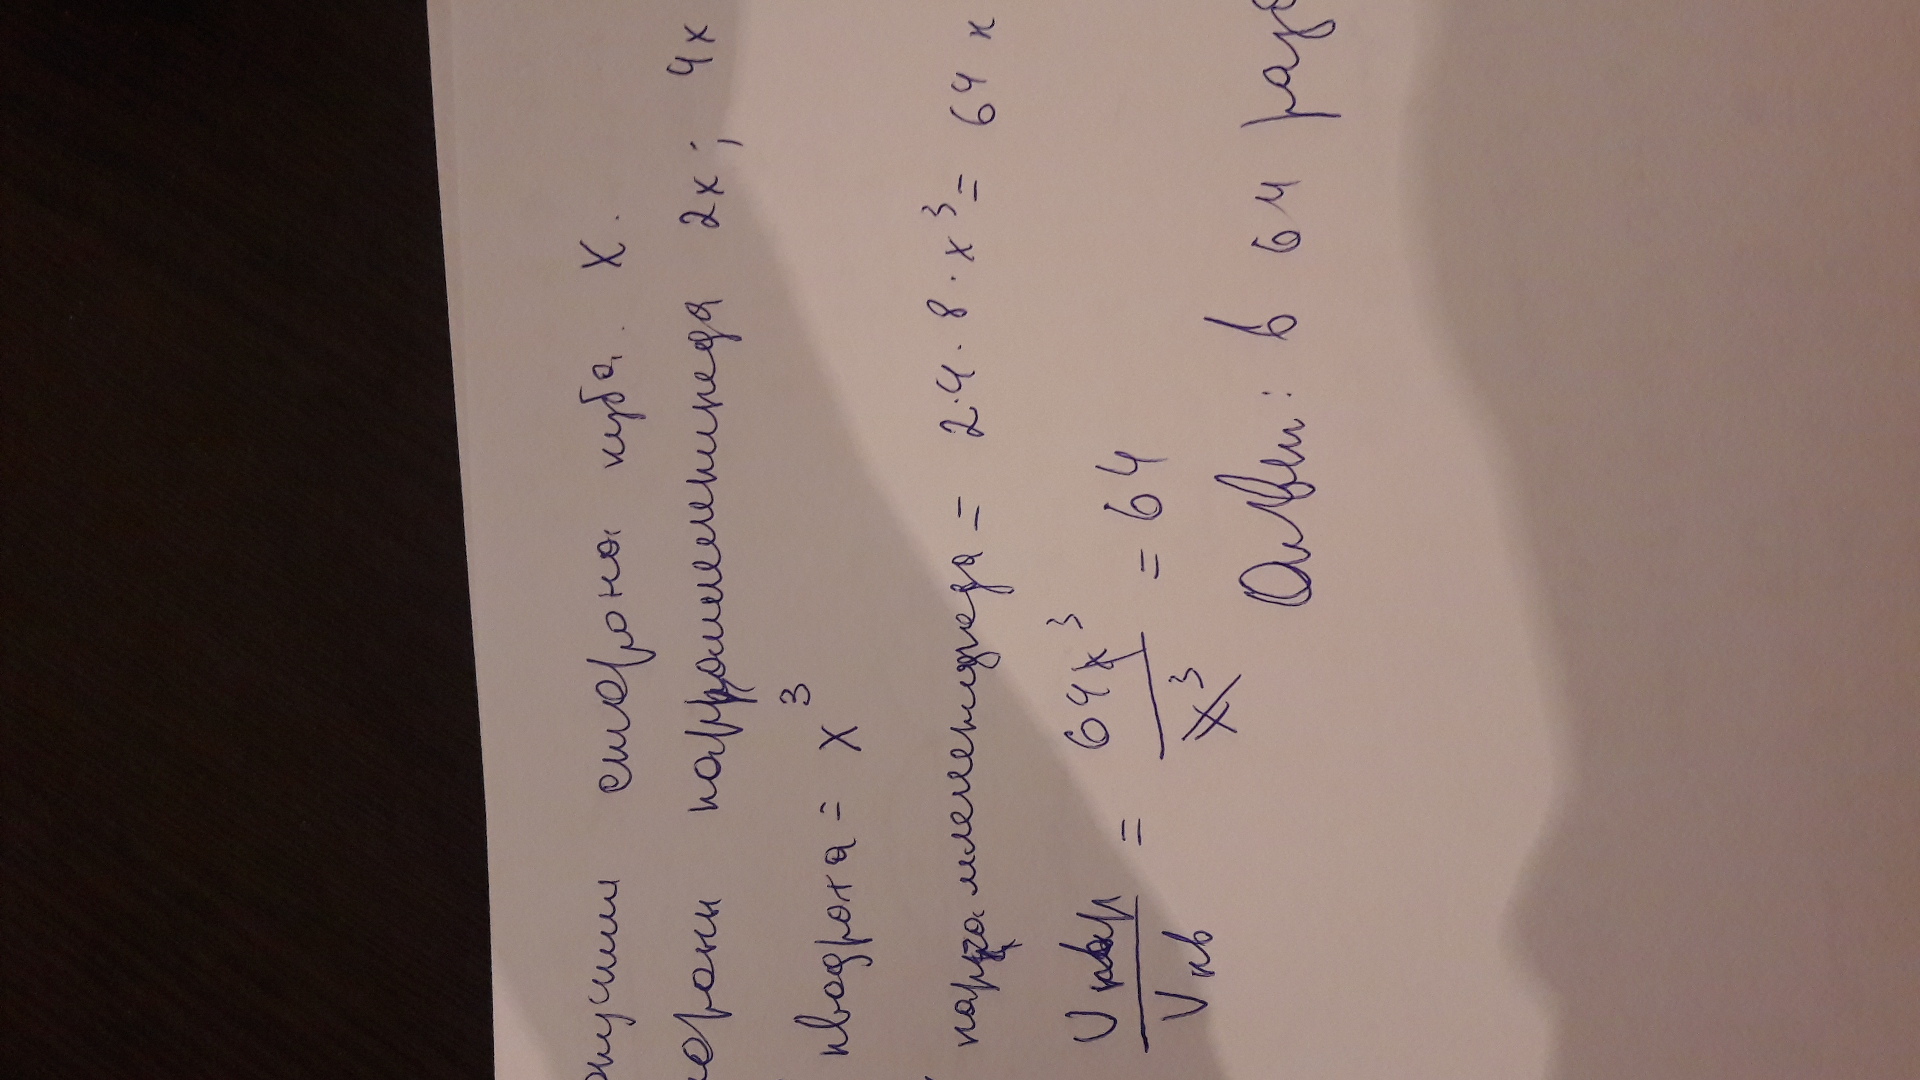 опустим сторона куба. X.
тороны паррралелепипеда 2x; 4x
квадрата = x³
паралелепипеда = 2·4·8·x³ = 64 x
V пар / V кв = 64x³ / x³ = 64
Ответ: в 64 раз